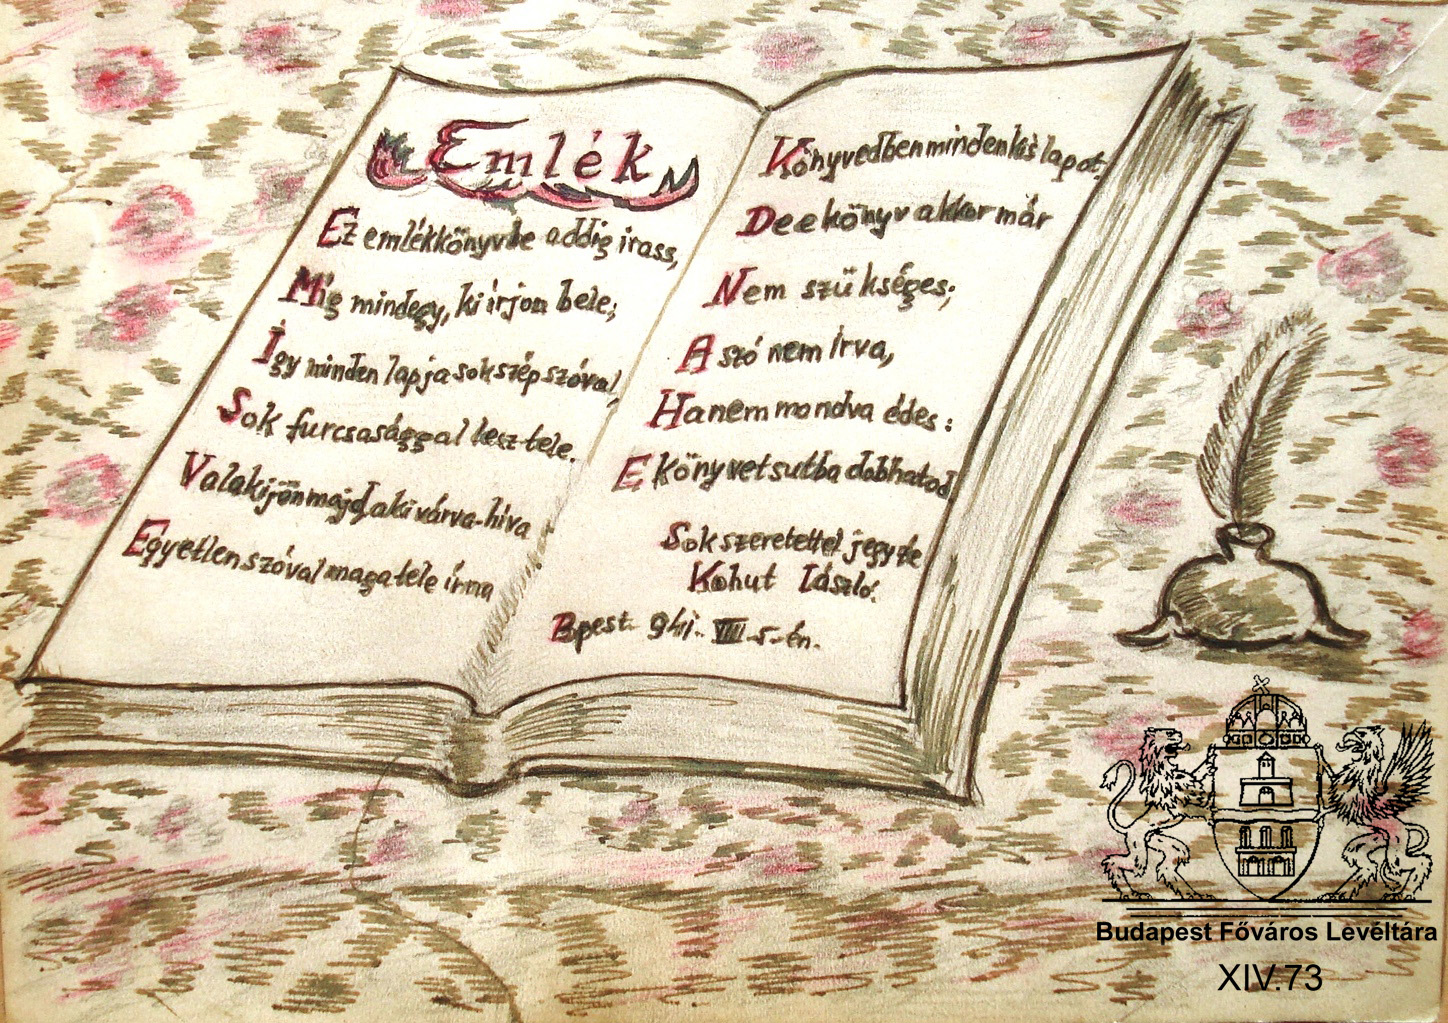 Emlék
Ez emlékkönyvbe addig irass,
Míg mindegy, ki írjon bele;
Így minden lapja sok szép szóval,
Sok furcsasággal lesz tele.
Valaki jön majd, aki várva-híva
Egyetlen szóval maga tele írna
Könyvedben minden kis lapot,
De e könyv akkor már
Nem szükséges;
A szó nem írva,
Hanem mondva édes:
E könyvet sutba dobhatod
Sok szeretettel jegyzé
Kohut László.
Bpest. 941. VIII-5-én.
Budapest Főváros Levéltára
XIV.73